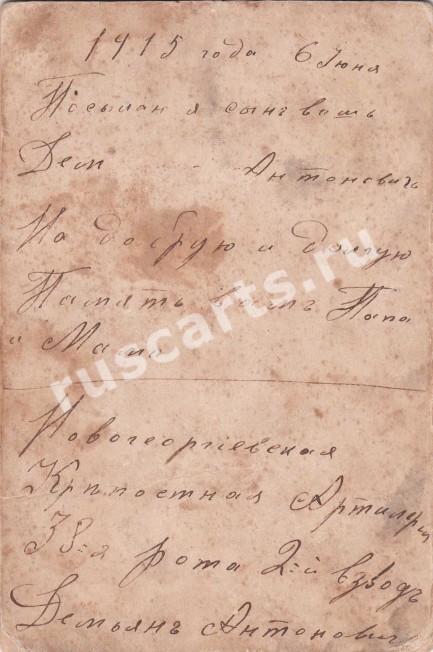 1915 года 6 Июня
Посылаю я сынъ вашъ
Дем Антоновичъ
На добрую и долгую
Память Вамъ Папа
и Мама
Новогеоргіевская
Крѣпостная Артилери
38-я рота 2-й взводъ
Демьянъ Антонович
ruscarts.ru